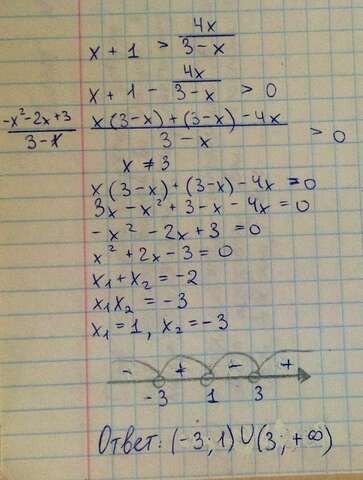 x + 1 > 4x/(3 - x)
x + 1 - 4x/(3 - x) > 0
(-x² - 2x + 3)/(3 - x) (x(3 - x) + (3 - x) - 4x)/(3 - x) > 0
x ≠ 3
x(3 - x) + (3 - x) - 4x = 0
3x - x² + 3 - x - 4x = 0
-x² - 2x + 3 = 0
x² + 2x - 3 = 0
x₁ + x₂ = -2
x₁x₂ = -3
x₁ = 1, x₂ = -3
- + - +
-3 1 3
Ответ: (-3; 1) ∪ (3; +∞)